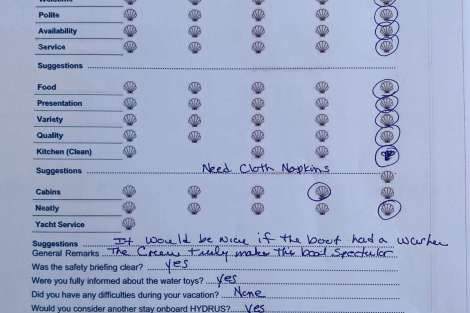 Welcome
Polite
Availability
Service
Suggestions
Food
Presentation
Variety
Quality
Kitchen (Clean)
Suggestions Need Cloth Napkins
Cabins
Neatly
Yacht Service
Suggestions It would be nice if the boat had a washer
General Remarks The Crew truly makes the boat Spectacular
Was the safety briefing clear? yes
Were you fully informed about the water toys? yes
Did you have any difficulties during your vacation? None
Would you consider another stay onboard HYDRUS? yes